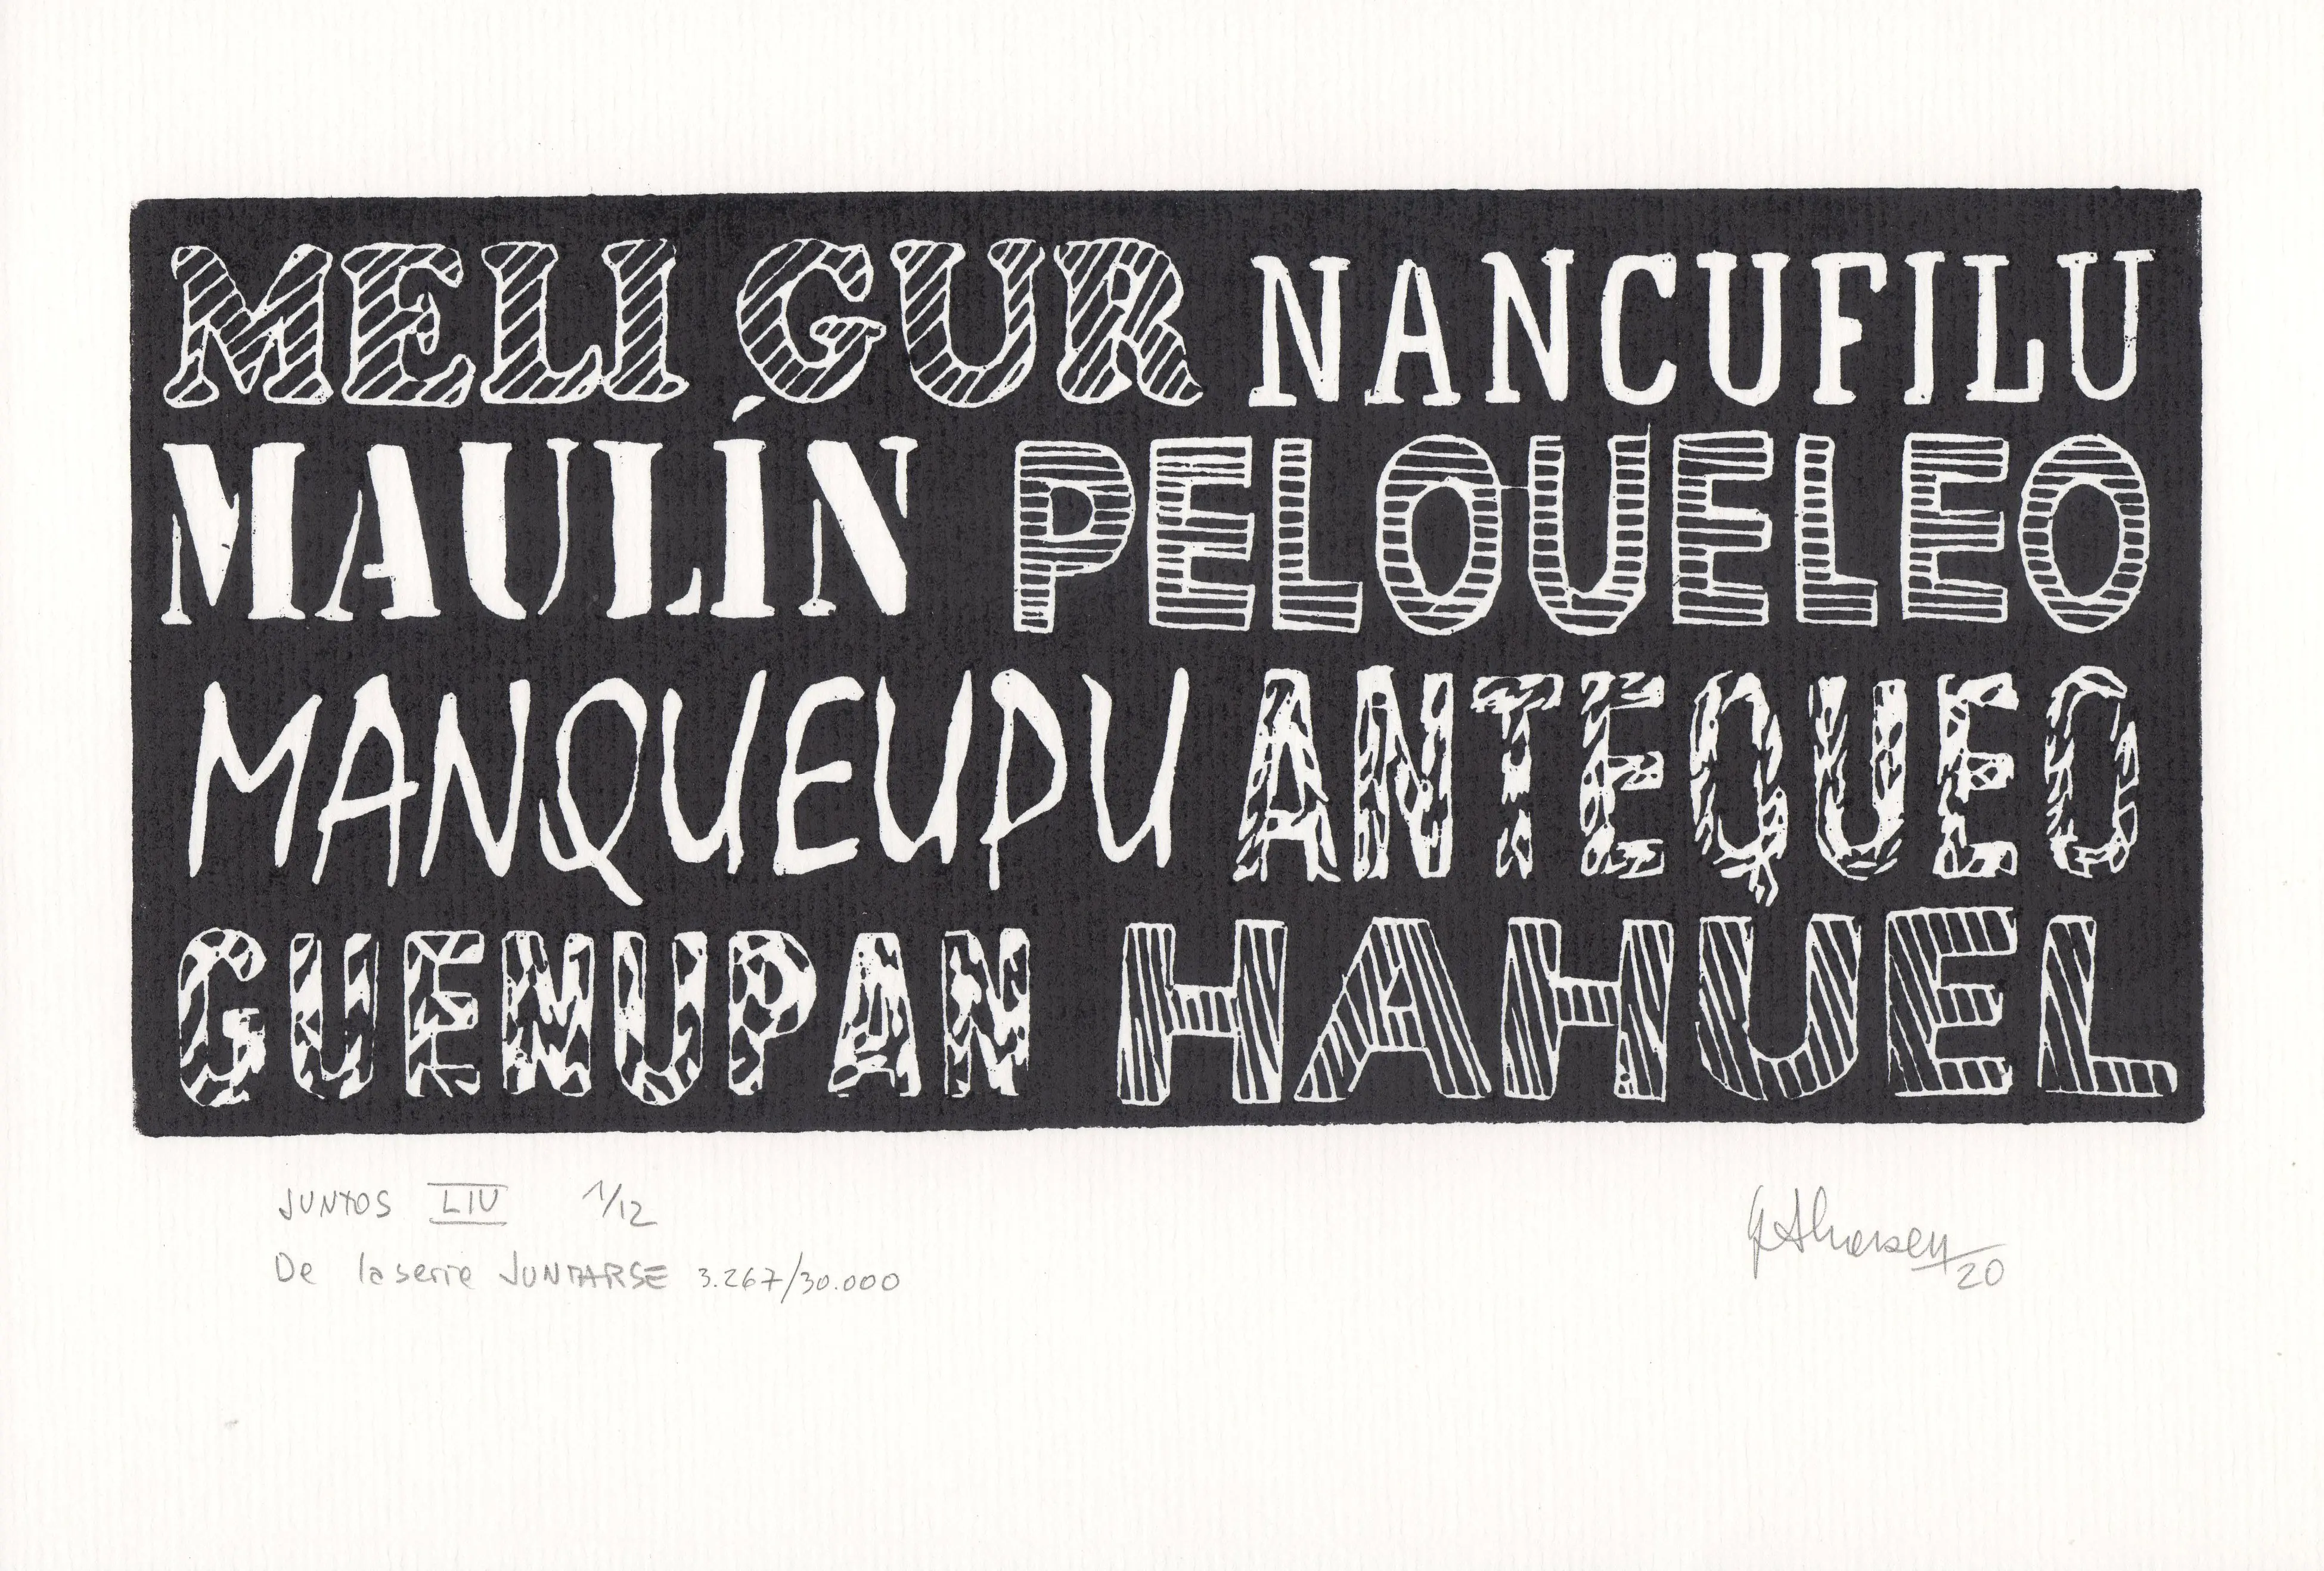 MELI GUR NANCUFILU
MAULÍN PELOUELEO
MANQUEUPU ANTEQUEO
GUENUPAN HAHUEL
JUNTOS LIV 1/12
De la serie JUNTARSE 3.267/30.000
20